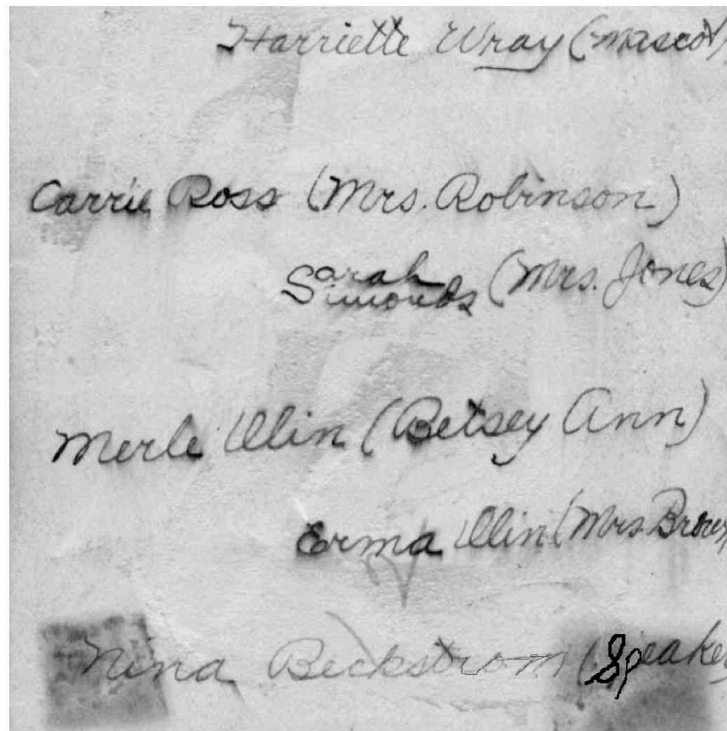 Harriette Wray (Mascot)
Carrie Ross (Mrs. Robinson)
Sarah
Simonds (Mrs. Jones)
Merle Ulin (Betsey Ann)
Erma Ulin (Mrs. Brown
Nina Beckstrom (Speaker